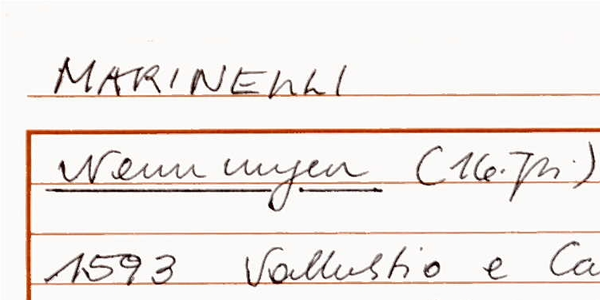 MARINELLI
Nennungen (16. Jh.)
1593 Vallustio e Ca